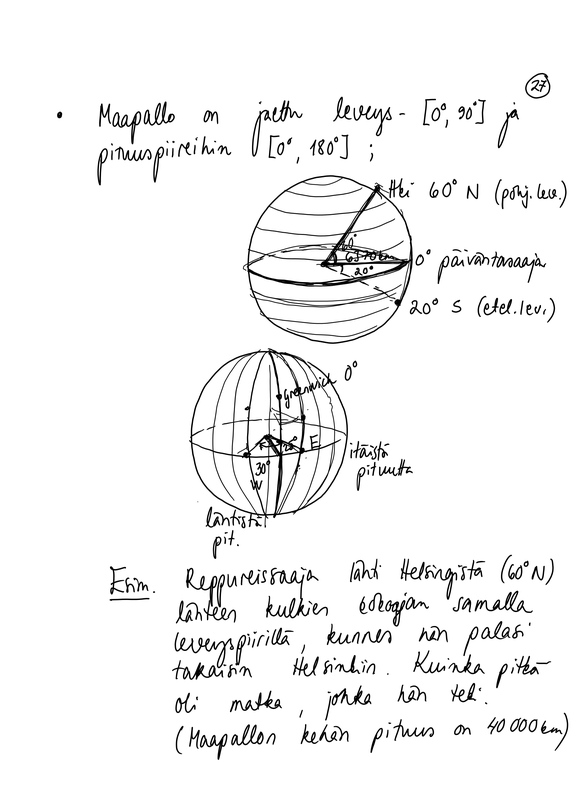 27
• Maapallo on jaettu leveys- [0°, 90°] ja
pituuspiireihin [0°, 180°] ;
Hki 60° N (pohj. lev.)
60°
6370 km
0° päiväntasaaja
20°
20° S (etel. lev.)
greenwich 0°
E
itäistä
pituutta
30°
W
läntistä
pit.
Esim. Reppureissaaja lähti Helsingistä (60° N)
länteen kulkien koko ajan samalla
leveyspiirillä, kunnes hän palasi
takaisin Helsinkiin. Kuinka pitkä
oli matka, jonka hän teki.
(Maapallon kehän pituus on 40 000 km)